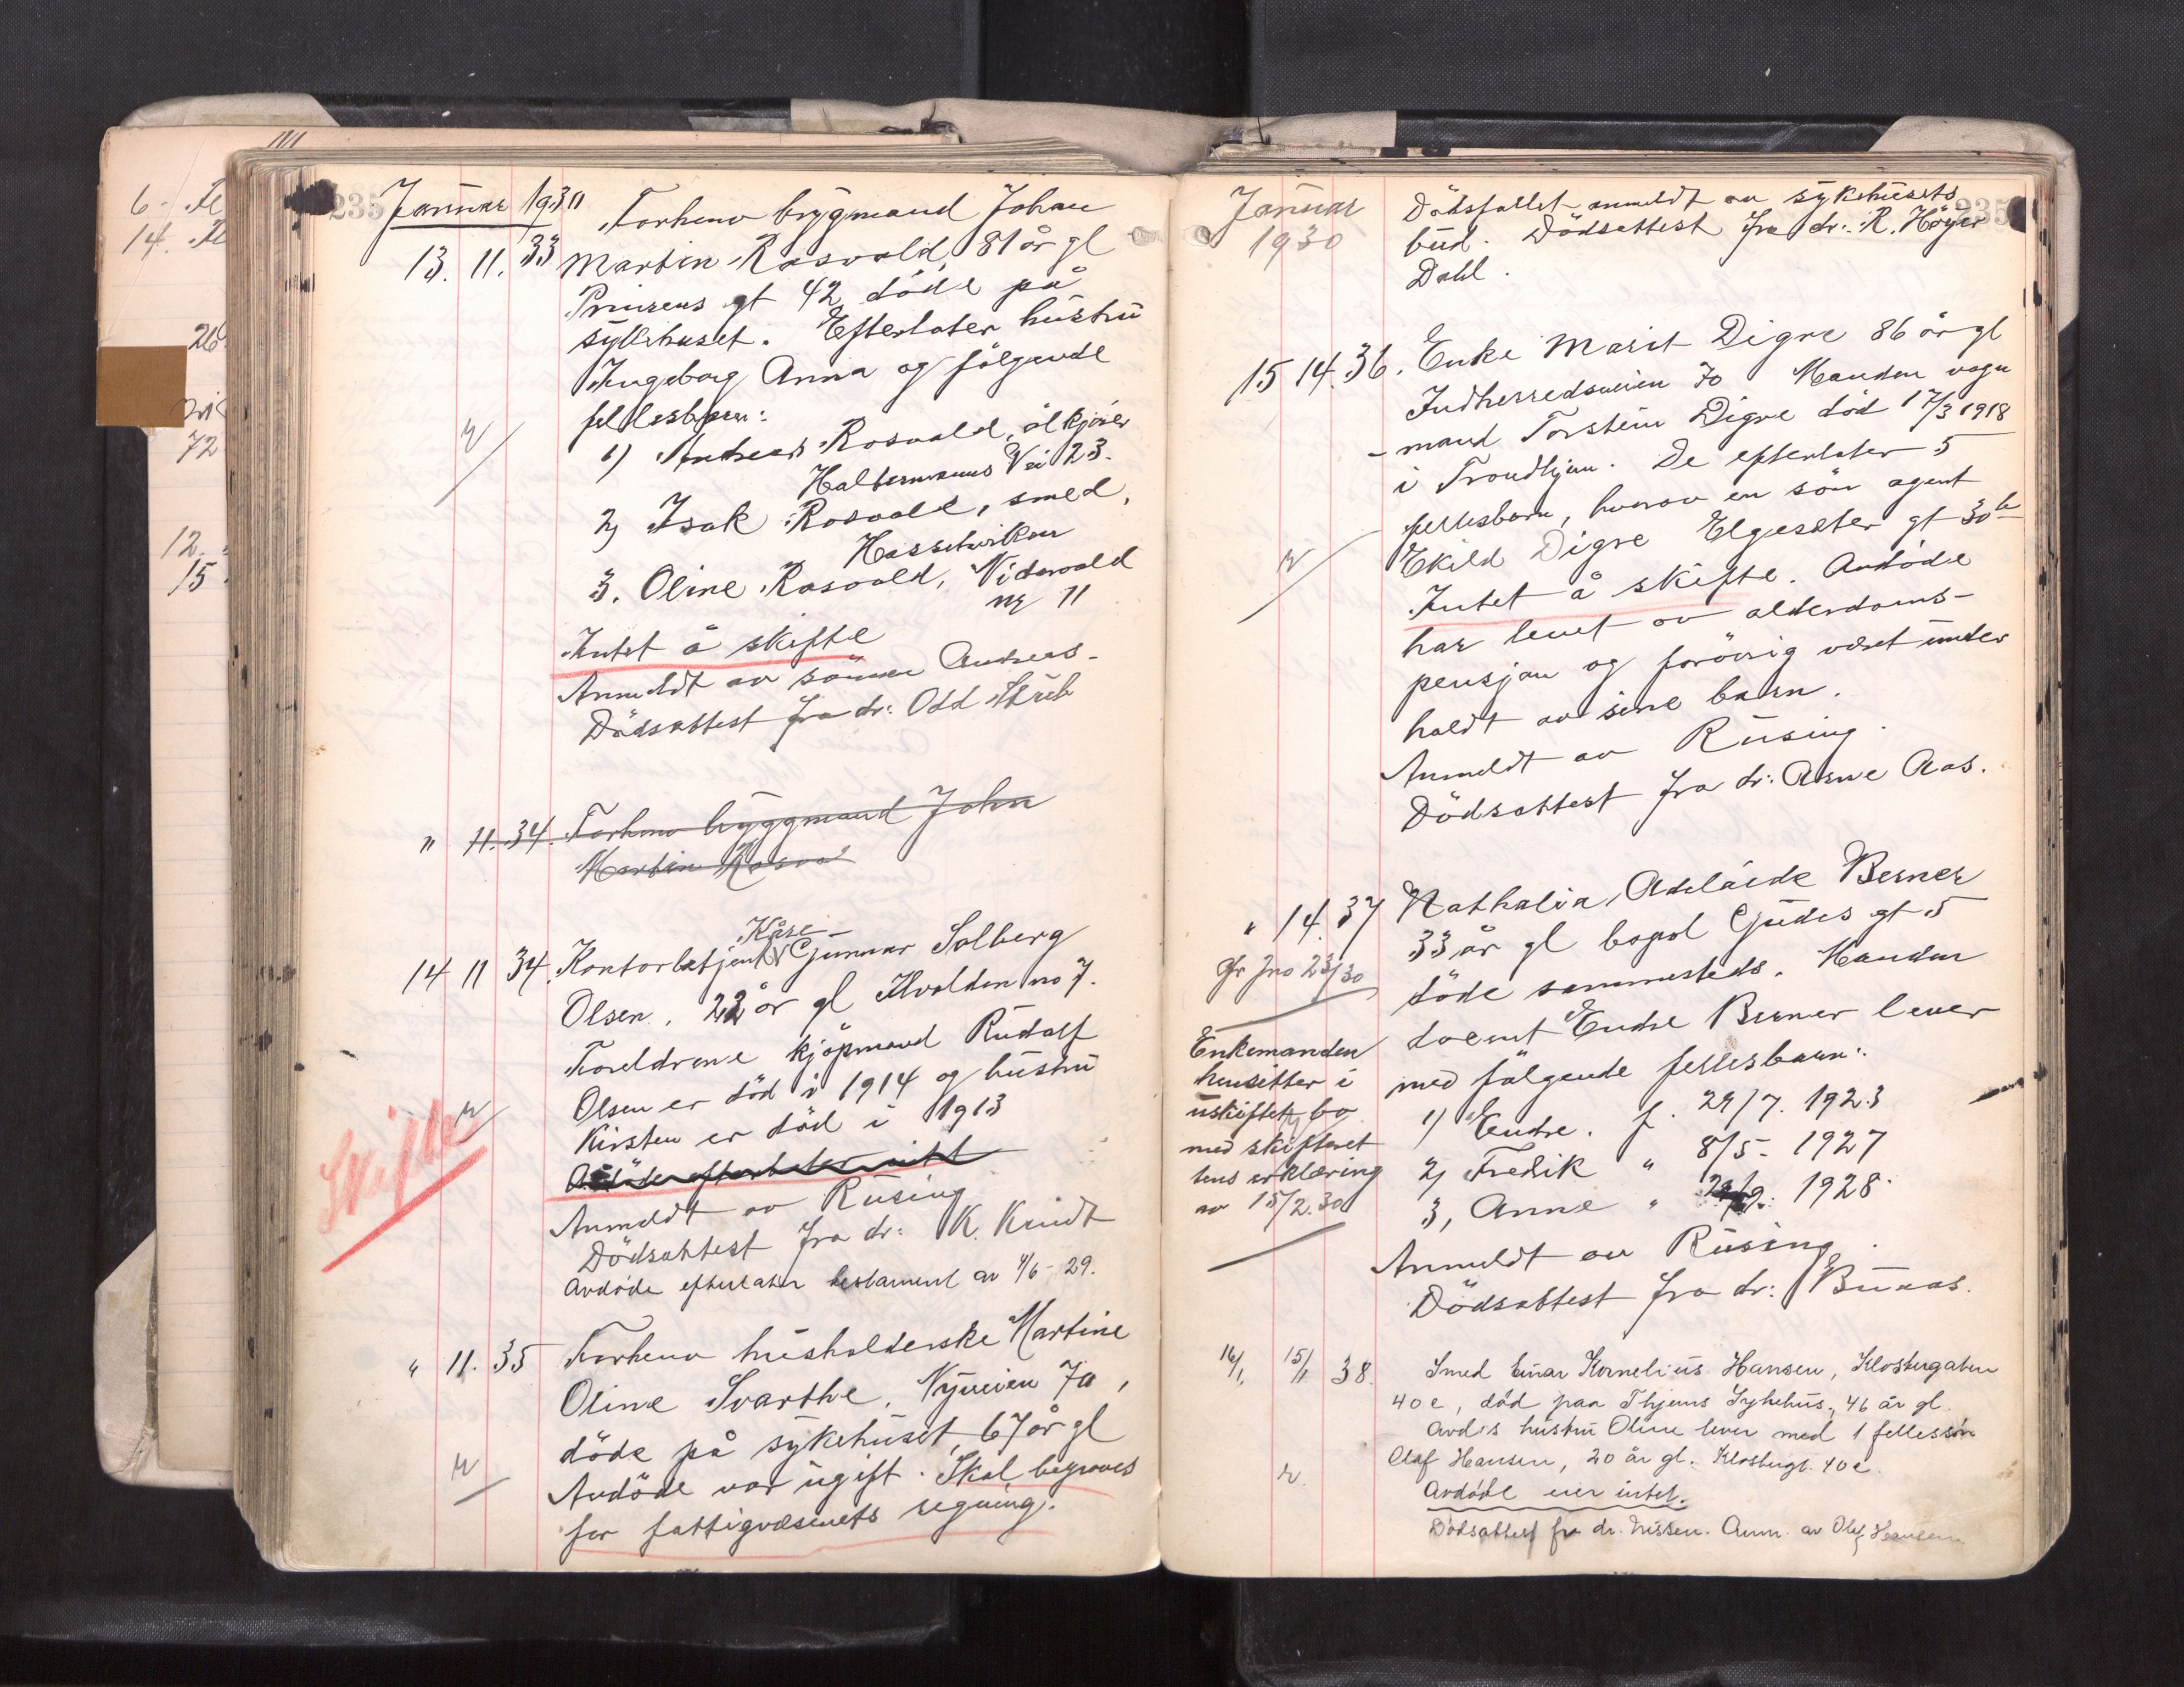 235 Januar 1930
13. 11. 33 Forhenv brygmand Johan
Martin Rosvold, 81 år gl
Prinsens gt 42 döde på
sykehuset. Efterlater hustru
Ingeborg Anna og fölgende
fellesbarn:
1) Andreas Rosvold, ölkjörer
Haltermanns Vei 23.
2) Isak Rosvold, smed,
Hasselviken
3. Oline Rosvold, Nidarvold
no 11
Intet å skifte
Anmeldt av sönnen Andreas.
Dödsattest fra dr: Odd
" 11. 34. Forhenv bryggmand John
Martin Rosvo
14 11 34. Kontorbetjent Kåre Gunnar Solberg
Olsen. 22 år gl Ilvolden no 7.
Foreldrene kjöpmand Rudolf
Olsen er död i 1914 og hustru
Kirsten er död i 1913
Avdöde efterlater intet
Skifte
Anmeldt av Rusing
Dödsattest fra dr: K. Krudt
Avdöde efterlater testament av 4/6-29.
" 11. 35 Forhenv husholderske Martine
Oline Svarthe, Nyveien 7a,
döde på sykehuset, 67 år gl
Avdöde var ugift. Skal begraves
for fattigvæsenets regning.
Januar 1930 235
Dödsfallet anmeldt av sykehusets
bud. Dödsattest fra dr: R. Höyer
Dahl.
15 14. 36. Enke Marit Digre 86 år gl
Indherredsveien 70 Manden vogn
-mand Torstein Digre död 17/3 1918
i Trondhjem. De efterlater 5
fellesbarn, hvorav en sön agent
Ekild Digre Elgeseter gt 30b
Intet å skifte. Avdöde
har levet av alderdoms-
pensjon og forövrig været under
holdt av sine barn.
Anmeldt av Rusing.
Dödsattest fra dr: Arne Aas.
" 14. 37 Nathalia Adelaide Berner
33 år gl bopel Gudes gt 5
döde sammesteds. Manden
docent Endre Berner lever
med fölgende fellesbarn:
1) Endre. f. 29/7. 1923
2) Fredik " 8/5- 1927
3, Anne " 1928.
Anmeldt av Rusing.
Dödsattest fra dr: Buaas.
Jfr jno 23/30
Enkemanden
hensitter i
uskiftet bo
med skifteret
tens erklæring
av 15/2.30
16/1. 15/1 38. Smed Einar Kornelius Hansen, Klostergaten
40c, död paa Thjems Sykehus, 46 år gl.
Avd's hustru Oline lever med 1 fellessön
Olaf Hansen, 20 år gl. Klostergt. 40c.
Avdöde eier intet.
Dödsattest fra dr. Nissen. Anm. av Olaf Hansen